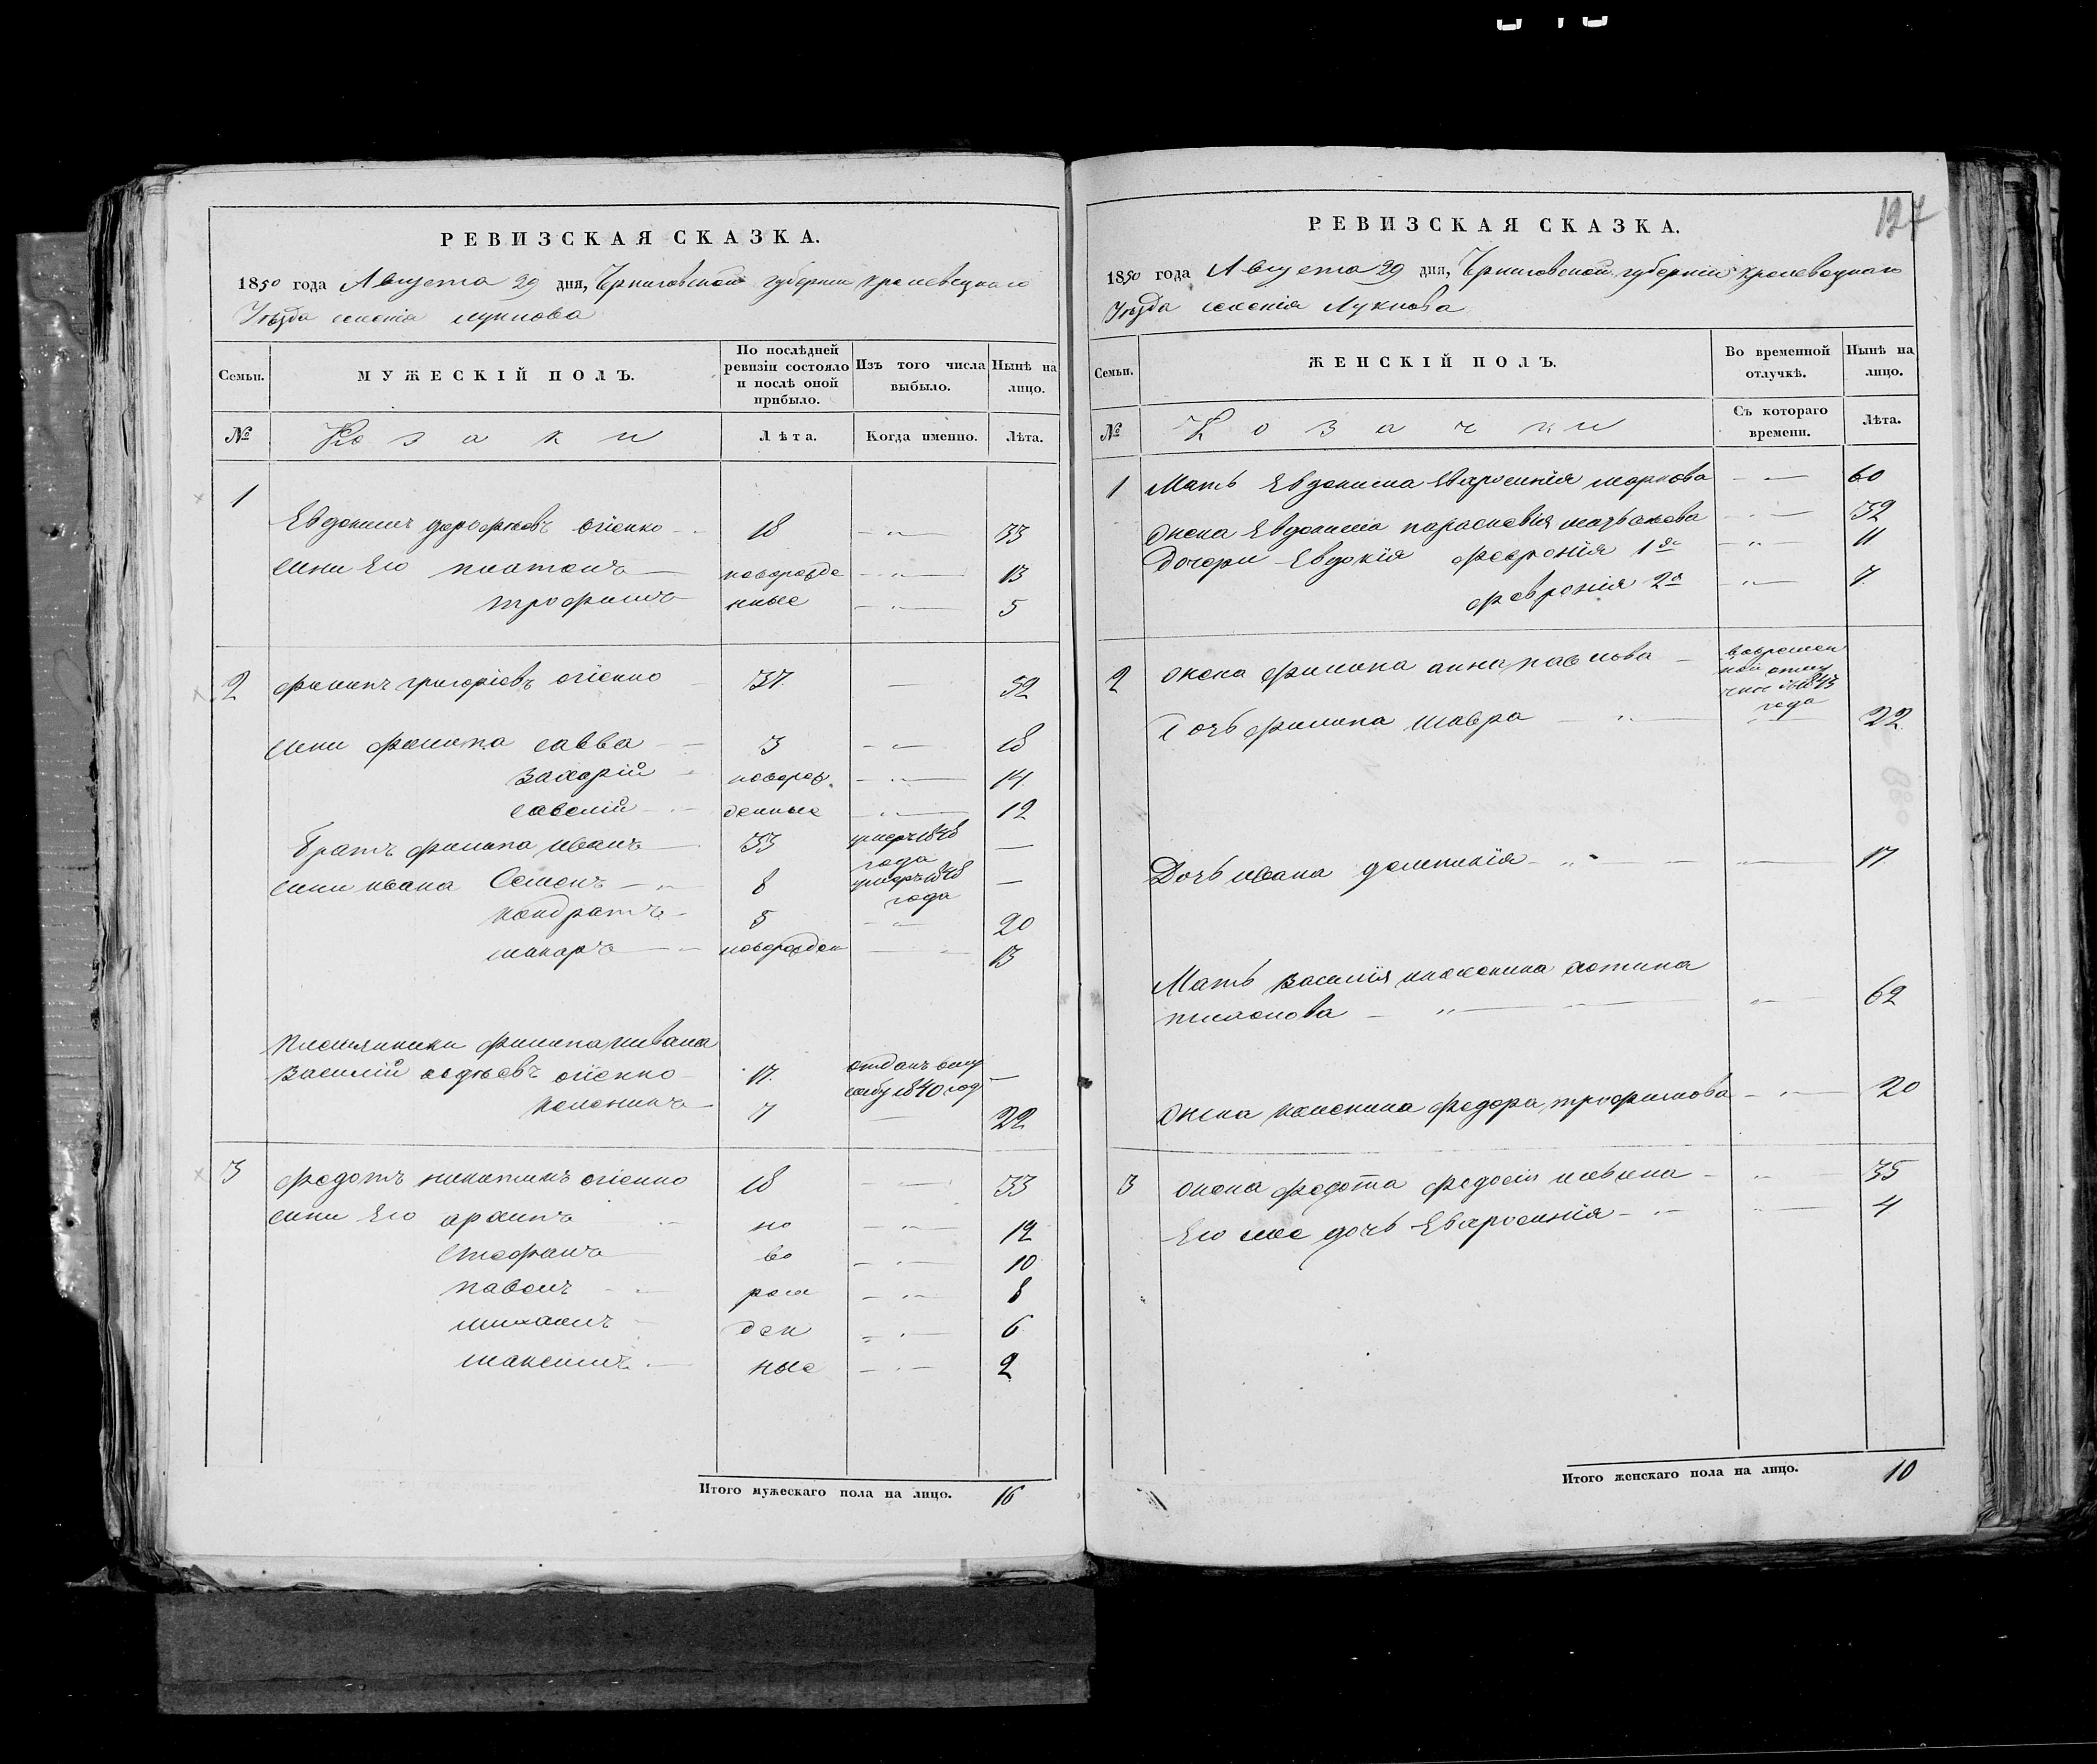 РЕВИЗСКАЯ СКАЗКА.
1850 года Августа 29 дня, Черниговской губернии Кролевецкаго
Уѣзда селенія Лукнова
Семьи.
МУЖЕСКІЙ ПОЛЪ.
По послѣдней ревизіи состояло и послѣ оной прибыло.
Изъ того числа выбыло.
Нынѣ на лицо.
№
Козаки
Лѣта.
Когда именно.
Лѣта.
1
Евдокимъ дорофѣевъ огіенко 18 33
сини Его платонъ новорожде 13
трофимъ нные 5
2 филипъ григоріевъ огіенко 37 52
сини филипа савва 3 18
захарій новорож 14
савелій денные 12
Братъ филипа иванъ 33 умеръ 1848 года
сини ивана Семенъ 8 умеръ 1848 года
кондратъ 5 20
макаръ новорожден 13
племянники филипа ивана
василій авдѣевъ огіенко 17 отданъ вслу жбу 1840 год
7 22
3 федотъ никитинъ огіенко 18 33
сини Его архипъ но 12
Стефанъ во 10
павелъ рож 8
михаилъ ден 6
максимъ ные 2
Итого мужескаго пола на лицо. 16
127
РЕВИЗСКАЯ СКАЗКА.
1850 года Августа 29 дня, Черниговской губерніи Кролевецкаго
Уѣзда селенія Лукнова
Семьи.
ЖЕНСКІЙ ПОЛЪ.
Во временной отлучкѣ.
Нынѣ на лицо.
№
Козачки
Съ котораго времени.
Лѣта.
1 Мать Евдокима Евфросинія маркова 60
жена Евдокима параскевія 32
Дочери Евдокія февронія 1я 11
февронія 2я 7
2 жена филипа анна павлова вовремен ной отлу чке 1843 года
Дочь филипа мавра 22
Дочь ивана домникія 17
Мать василія 62
жена федора трофимова 20
3 жена федота федосія 35
Его же дочь Евфросинія 4
Итого женскаго пола на лицо. 10